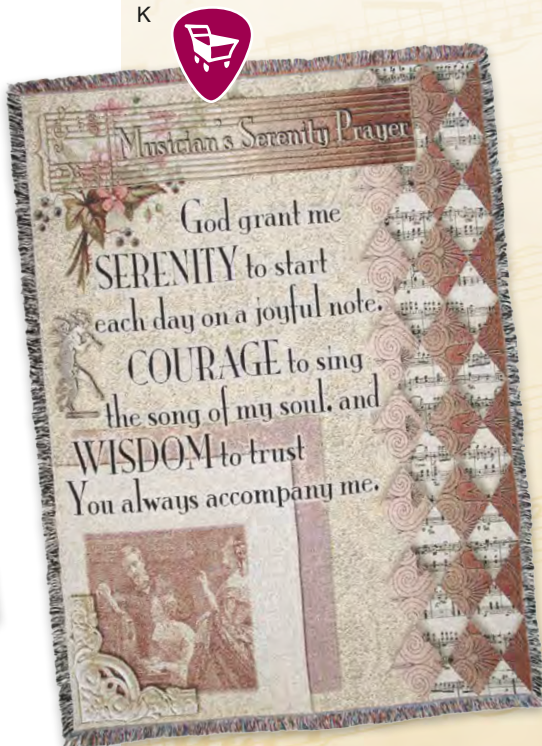 K
Musician's Serenity Prayer
God grant me
SERENITY to start
each day on a joyful note.
COURAGE to sing
the song of my soul, and
WISDOM to trust
You always accompany me.